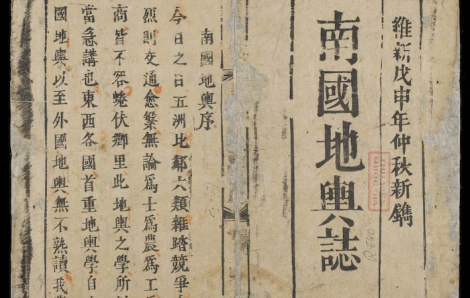 維新戊申年仲秋新鐫
南國地輿誌
南國地輿序
今日之日五洲比鄰六類雜踏競爭
烈則交通愈繁無論爲士爲農爲工
商皆不容蜷伏鄉里此地輿之學所
當急講也東西各國首重地輿學自
國地輿以至外國地輿無不熟讀我